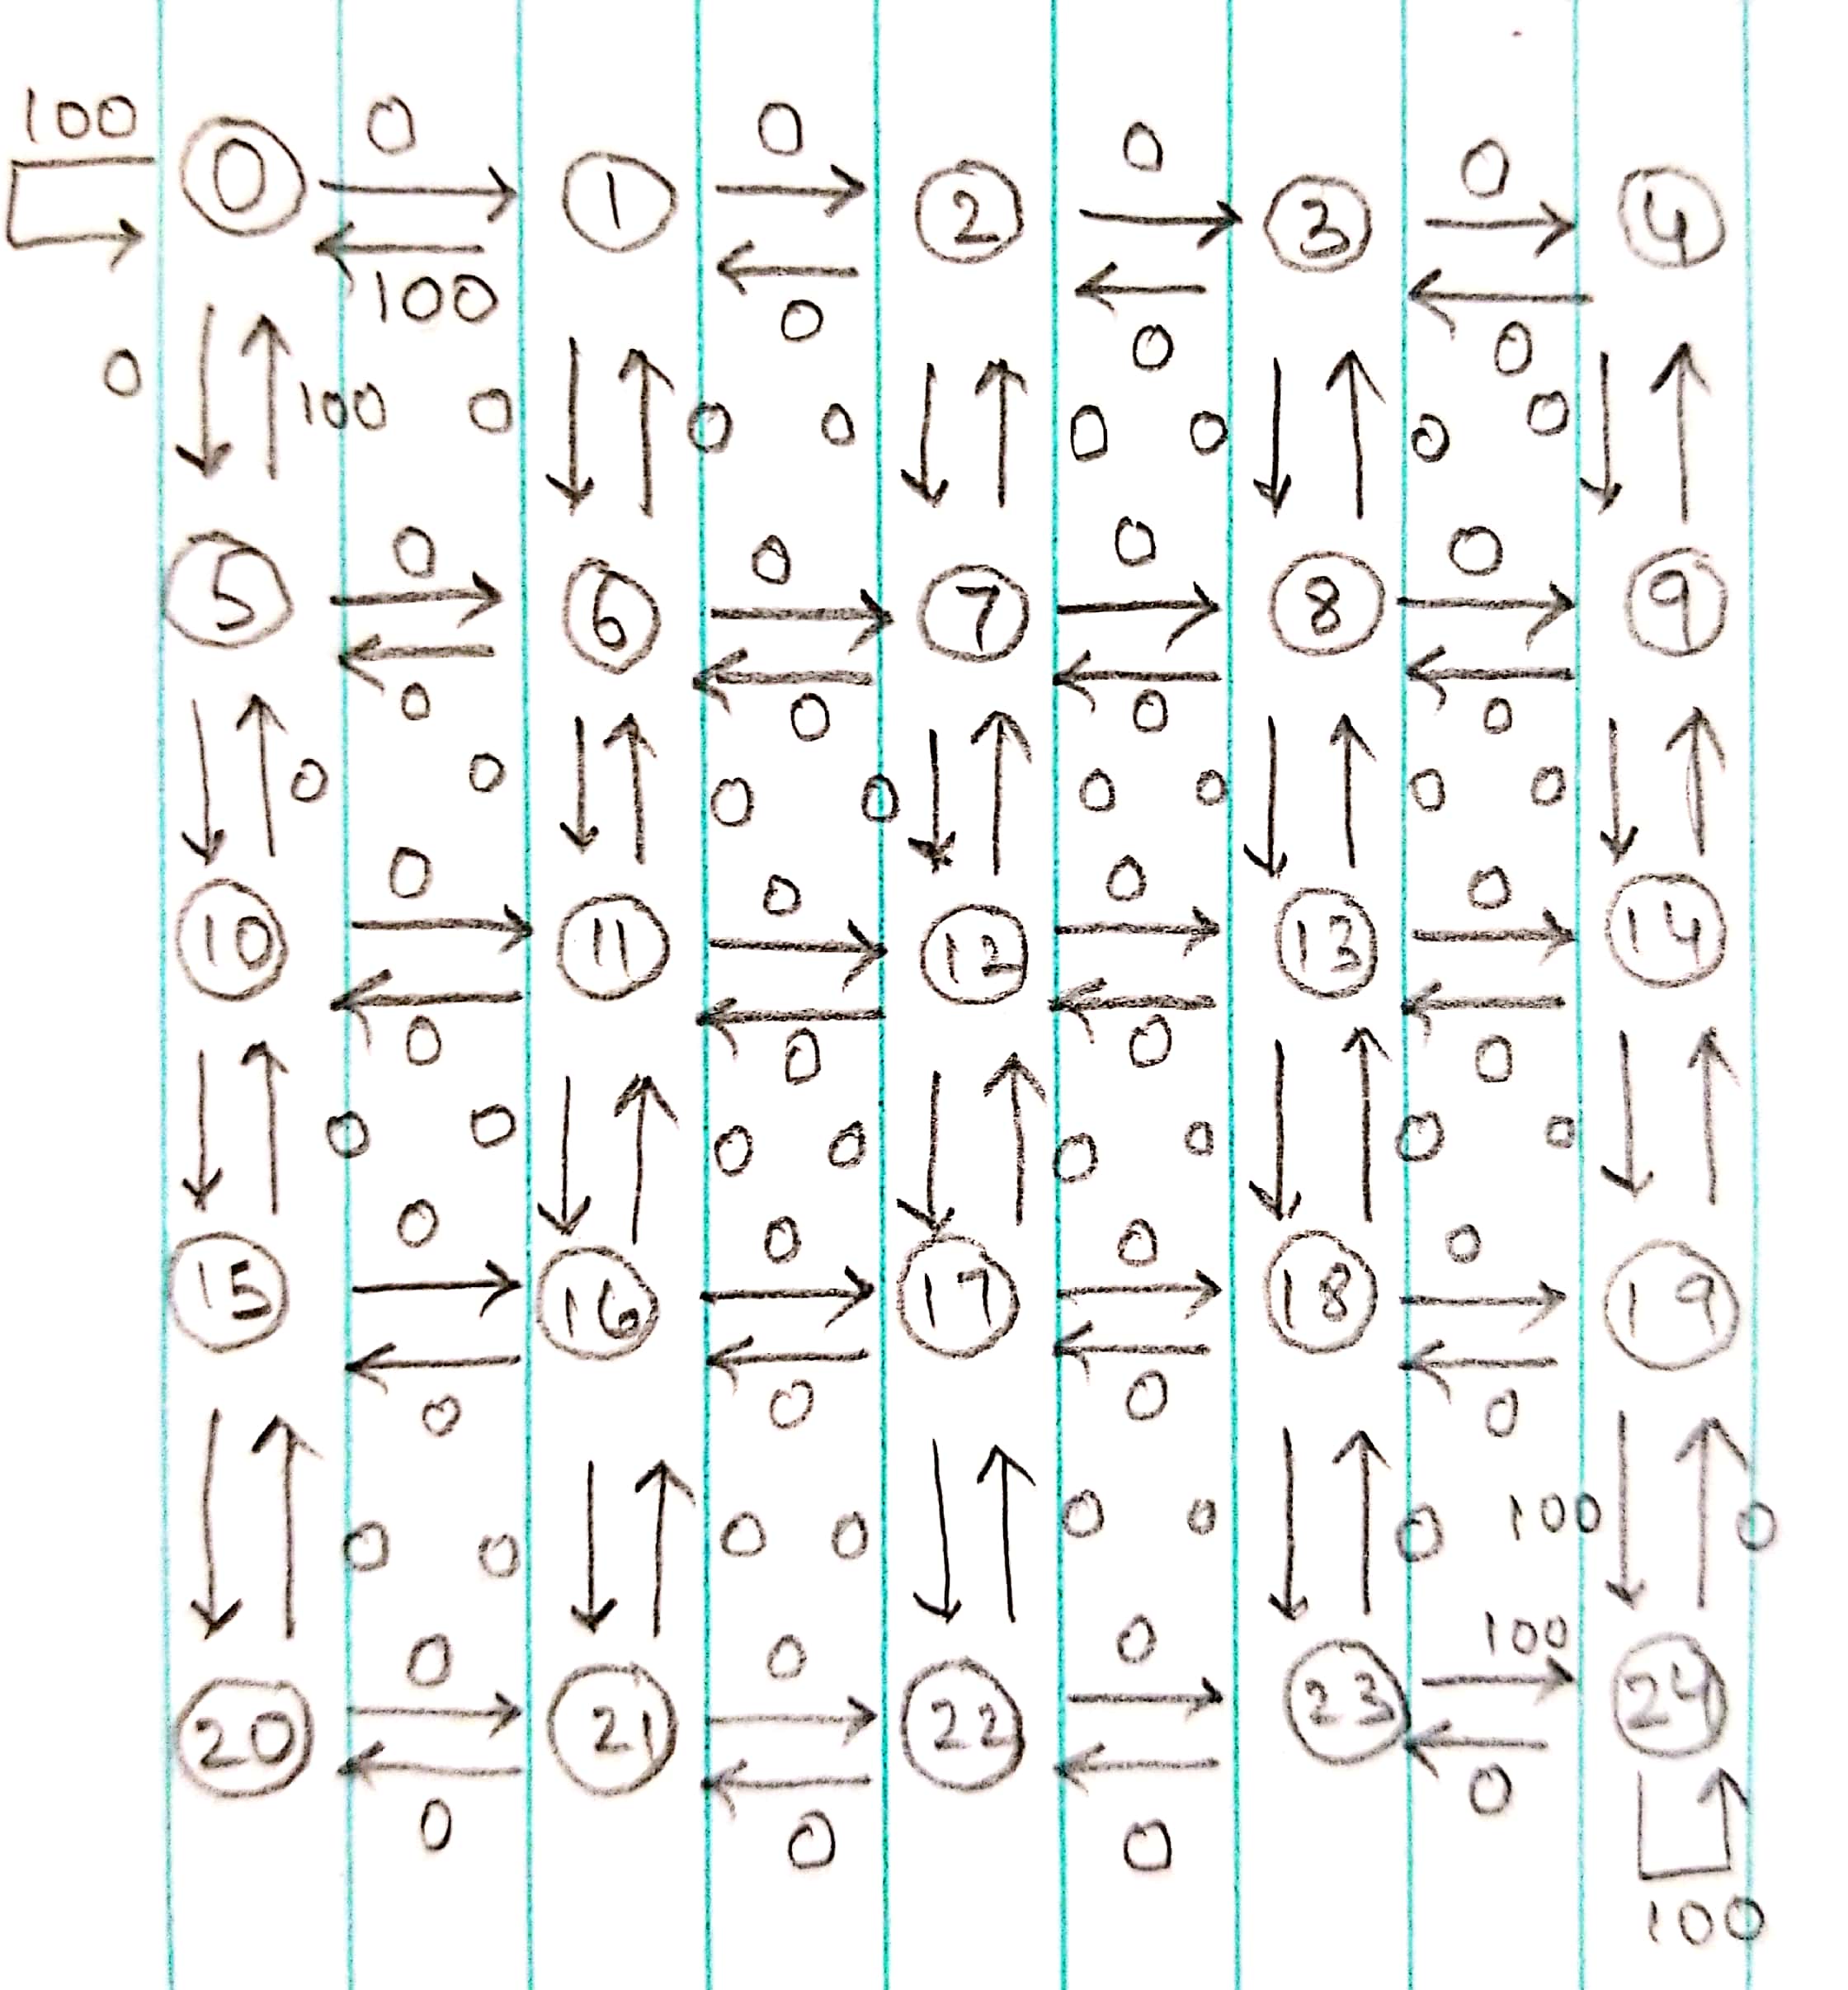 100 0 0 0 0
0 1 2 3 4
100 0 0 0
0 100 0 0 0 0 0 0 0
0 0 0 0
5 6 7 8 9
0 0 0 0
0 0 0 0 0 0 0 0
0 0 0 0
10 11 12 13 14
0 0 0 0
0 0 0 0 0 0 0 0
0 0 0 0
15 16 17 18 19
0 0 0 0
0 0 0 0 0 0 0 100 0
0 0 0 100
20 21 22 23 24
0 0 0 0
100